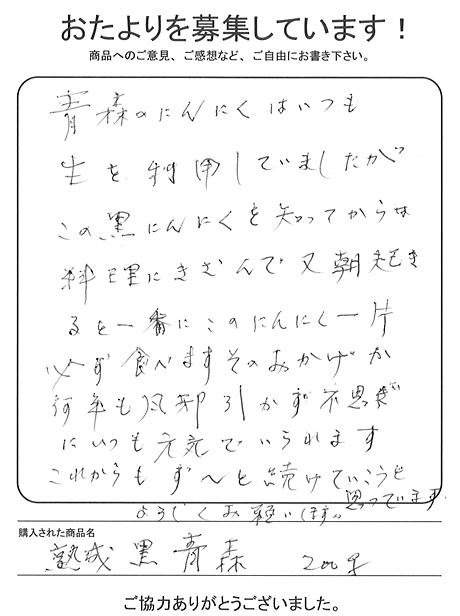 おたよりを募集しています！
商品へのご意見、ご感想など、ご自由にお書き下さい。
青森のにんにくはいつも
生を利用していましたが
この黒にんにくを知ってからは
料理にきざんで又朝起き
ると一番にこのにんにく一片
必ず食べますそのおかげか
何年も風邪引かず不思ぎ
にいつも元気でいられます
これからもず〜と続けていこうと
思っています
よろしくお願いします。
購入された商品名
熟成黒青森 200g
ご協力ありがとうございました。